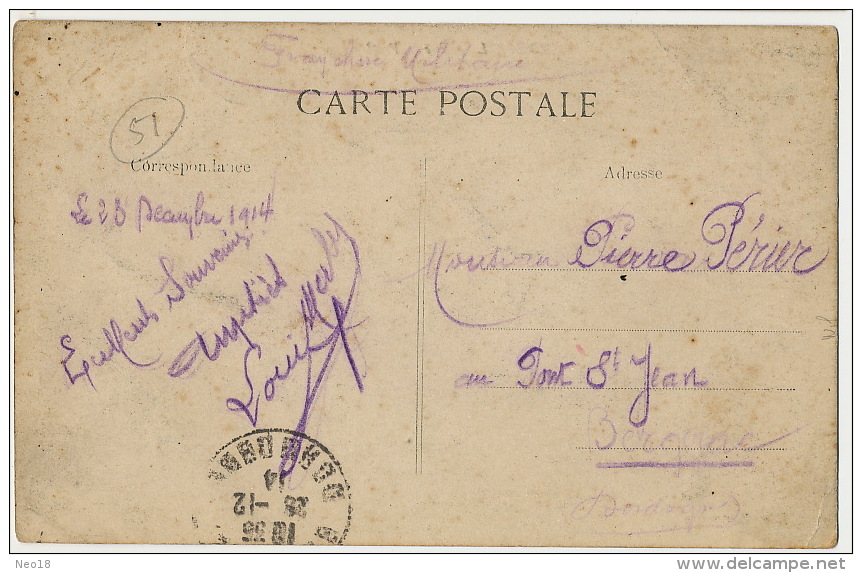 Franchise Militaire
CARTE POSTALE
51
Correspondance
Adresse
Le 25 Décembre 1914
Excellents Souvenirs
Amitiés
Louis
Monsieur Pierre Périer
au Pont St Jean
Bergerac
(Dordogne)
BORDEAUX
18 35
26 -12
14
Neo18
www.delcampe.net